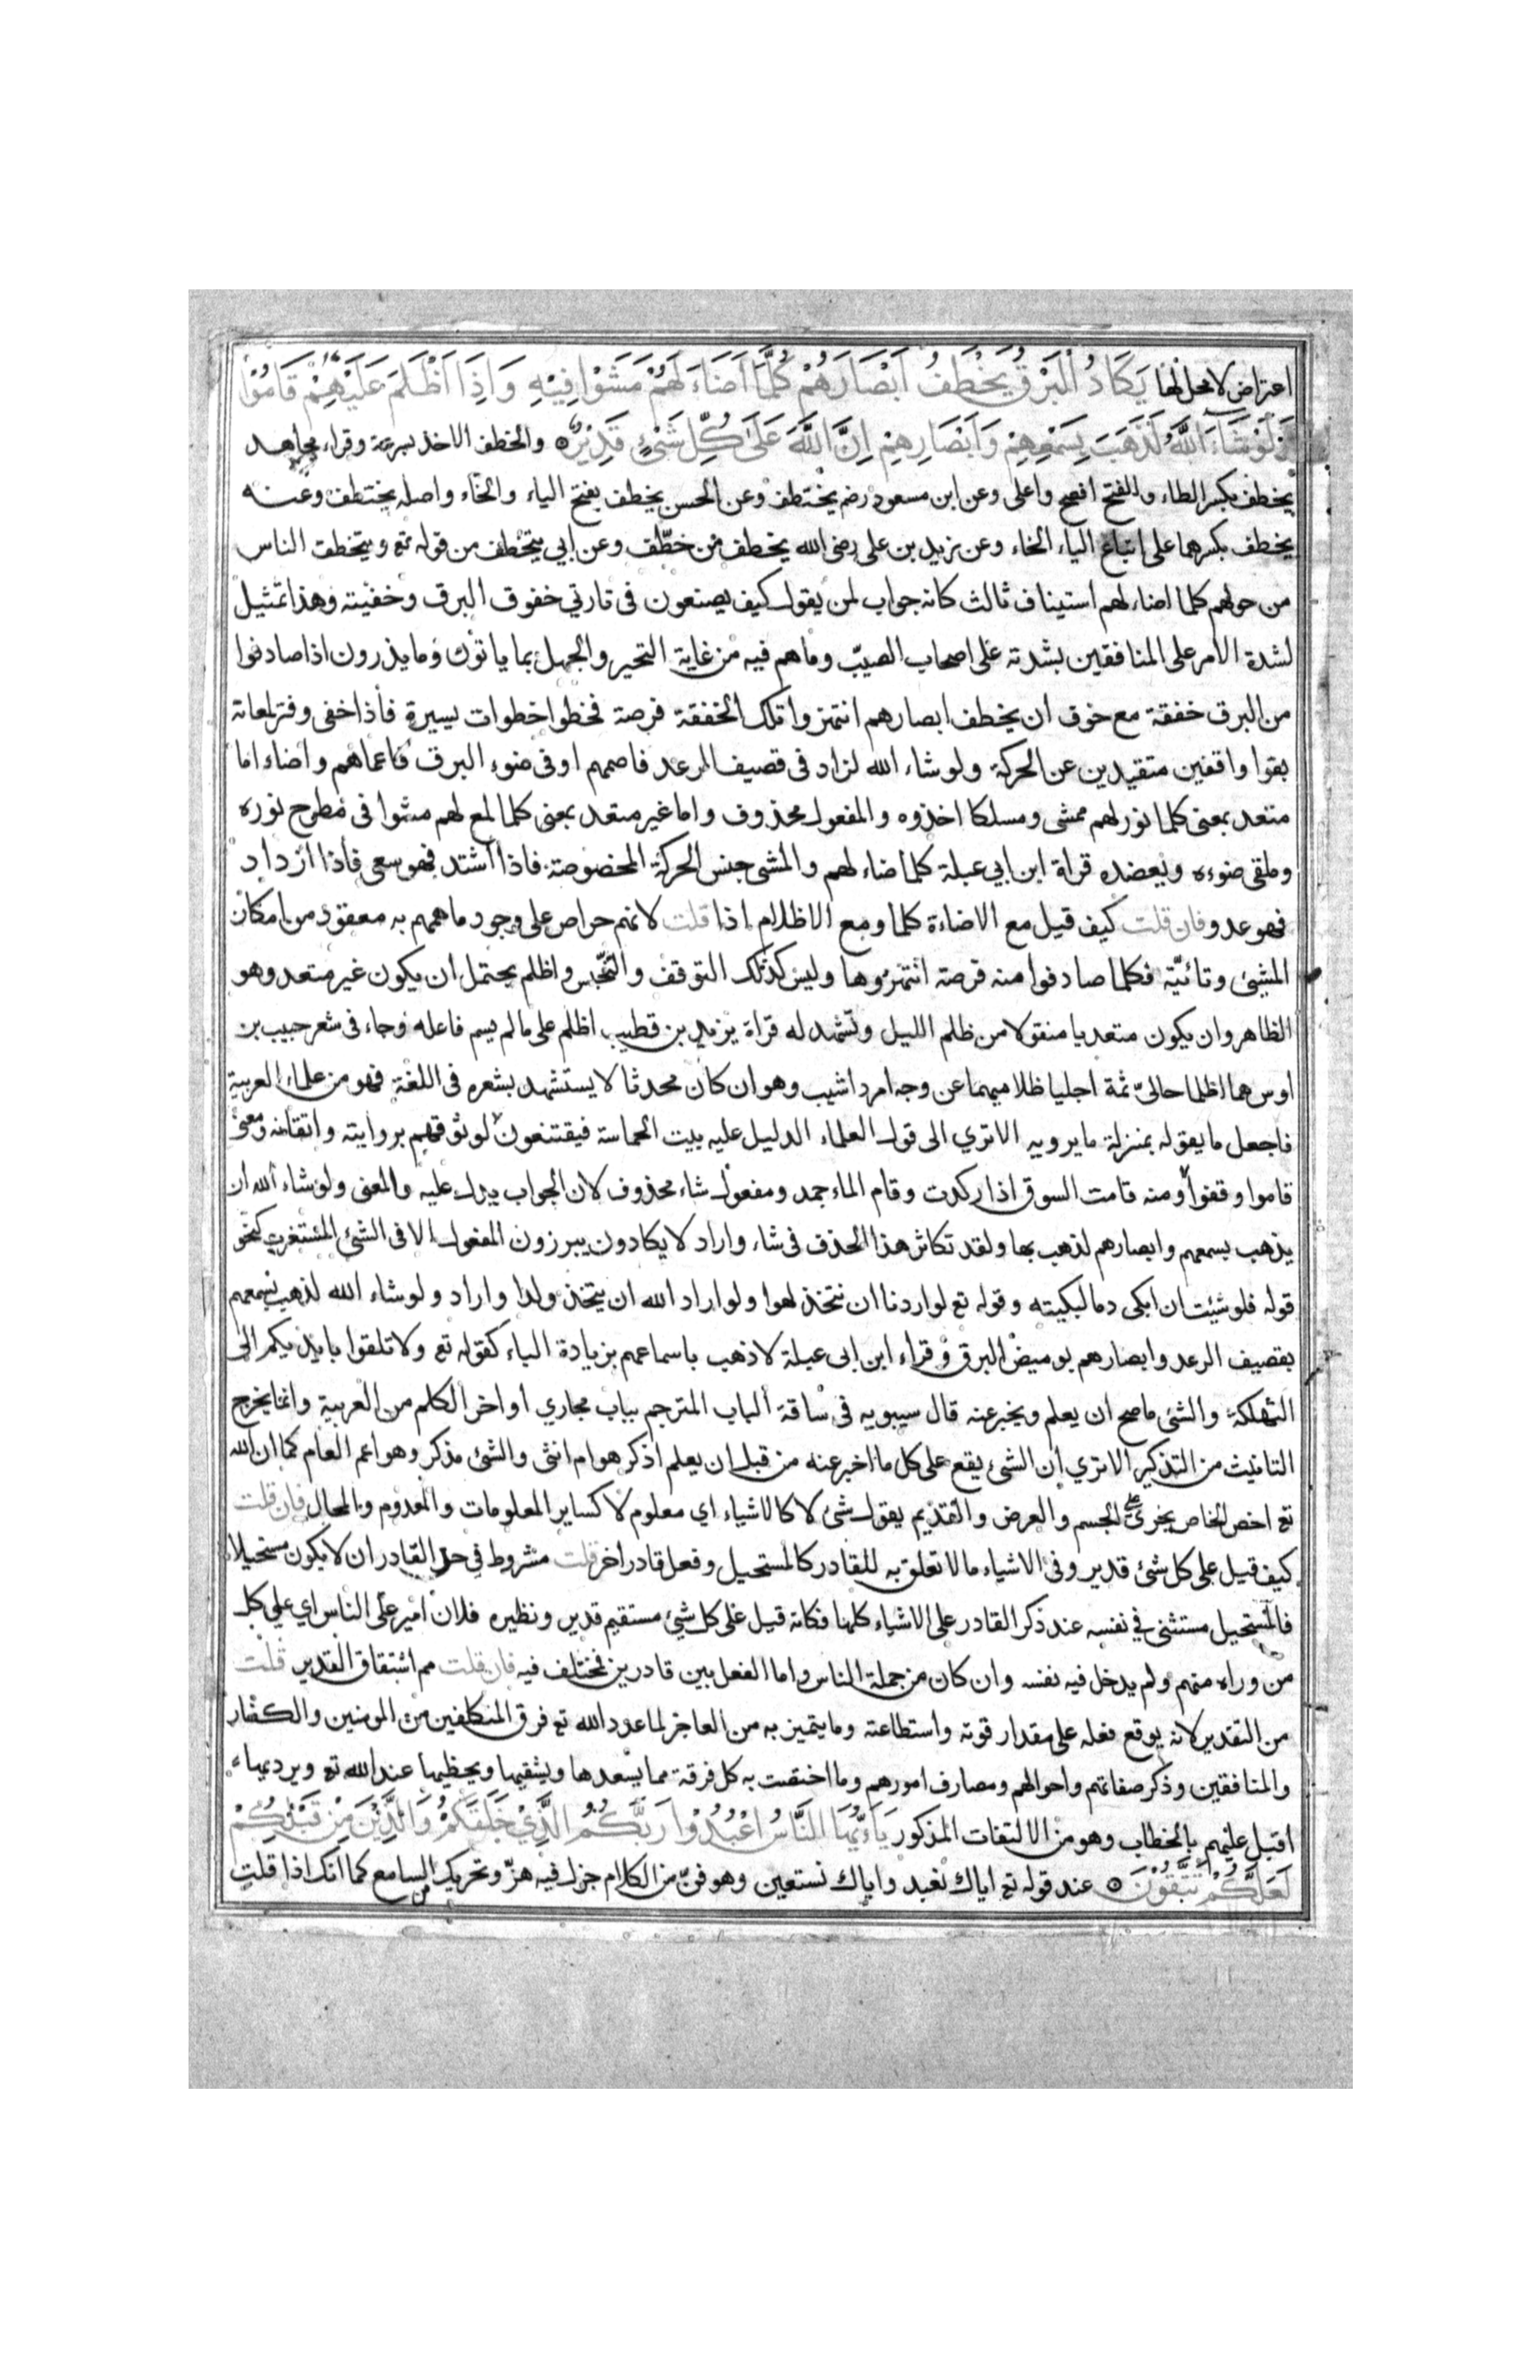 اعتراض لا محل لها يَكَادُ الْبَرْقُ يَخْطَفُ اَبْصَارَهُمْ كُلَّمَا اَضَاءَ لَهُمْ مَشَوْا فِيْهِ وَاِذَا اَظْلَمَ عَلَيْهِمْ قَامُوْا
وَلَوْ شَاءَ اللَّهُ لَذَهَبَ بِسَمْعِهِمْ وَاَبْصَارِهِمْ اِنَّ اللَّهَ عَلَى كُلِّ شَئٍْ قَدِيْرٌ والخطف الاخذ بسرعة وقراء مجاهد
يخطف بكسر الطاء والفتح افصح واعلى وعن ابن مسعود رضم يختطف وعن الحسن يخطف بفتح الياء والخاء واصله يختطف وعنه
يخطف بكسرهما على اتباع الياء الخاء وعن زيد بن على رضى الله يخطف من خطّف وعن ابي يتخطف من قوله تع ويتخطف الناس
من حولهم كلما اضاء لهم استيناف ثالث كانه جواب لمن يقول كيف يصنعون فى تارتي خفوق البرق وخفيته وهذا تمثيل
لشدة الامر على المنافقين بشدته على اصحاب الصيّب وماهم فيه من غاية التحير والجهل بما ياتون وما يذرون اذا صادفوا
من البرق خفقة مع خوف ان يخطف ابصارهم انتهزوا تلك الخفقة فرصة فخطوا خطوات يسيرة فأذا خفى وفتر لمعانه
بقوا واقفين متقيدين عن الحركة ولو شاء الله لزاد فى قصيف الرعد فاصمهم اوفى ضوء البرق فاعماهم واضاء اما
متعد بمعنى كلما نور لهم ممشى ومسلكا اخذوه والمفعول محذوف واما غير متعد بمعنى كلما لمع لهم مشوا فى مطرح نوره
وملقى ضوءه ويعضده قراة ابن ابي عبلة كلما ضاء لهم والمشى جنس الحركة المخصوصة فاذا اشتد فهو سعى فأذا ازداد
فهو عدو فان قلت كيف قيل مع الاضاءة كلما ومع الاظلام اذا قلت لانهم حراص على وجود ما همهم به معقود من امكان
المشئ وتائيّه فكلما صادفوا منه فرصة انتهزوها وليس كذلك التوقف والتحبّس واظلم يحتمل ان يكون غير متعد وهو
الظاهر وان يكون متعديا منقولا من ظلم الليل وتشهد له قراة يزيد بن قطيب اظلم على مالم يسم فاعله وجاء فى شعر حبيب بن
اوس هما اظلما حاليّ ثمة اجليا ظلاميهما عن وجه امرد اشيب وهو ان كان محدثا لا يستشهد بشعره فى اللغة فهو من علماء العربية
فاجعل ما يقوله بمنزلة ما يرويه الاترى الى قول العلماء الدليل عليه بيت الحماسة فيقتنعون لوثوقهم بروايته واتقانه ومعنى
قاموا وقفوا ومنه قامت السوق اذا ركدت وقام الماء جمد ومفعول شاء محذوف لان الجواب يدل عليه والمعنى ولو شاء الله ان
يذهب بسمعهم وابصارهم لذهب بها ولقد تكاثر هذا الحذف فى شاء واراد لا يكادون يبرزون المفعول الا فى الشئ المستغرب كنحو
قوله فلو شئت ان ابكى دما لبكيته وقوله تع لو اردنا ان نتخذ لهوا ولو اراد الله ان يتخذ ولدا واراد ولو شاء الله لذهب بسمعهم
بقصيف الرعد وابصارهم بوميض البرق وقراء ابن ابى عبلة لاذهب باسماعهم بزيادة الباء كقوله تع ولا تلقوا بايديكم الى
التهلكة والشئ ماصح ان يعلم ويخبر عنه قال سيبويه فى ساقة الباب المترجم بباب مجاري اواخر الكلم من العربية وانما يخرج
التانيث من التذكير الاترى ان الشئ يقع على كل ما اخبر عنه من قبل ان يعلم اذكر هو ام انثى والشئ مذكر وهو اعم العام كما ان الله
تع اخص الخاص يجرى على الجسم والعرض والقديم يقول شئ لا كالاشياء اي معلوم لا كساير المعلومات والمعدوم والمحال فان قلت
كيف قيل على كل شئ قدير وفى الاشياء مالا تعلق به للقادر كالمستحيل وفعل قادر اخر قلت مشروط فى حد القادر ان لا يكون مستحيلا
فالمستحيل مستثنى فى نفسه عند ذكر القادر على الاشياء كلها فكانه قيل على كل شئ مستقيم قدير ونظيره فلان امير على الناس اي على كل
من وراه منهم ولم يدخل فيه نفسه وان كان من جملة الناس واما الفعل بين قادرين فمختلف فيه فان قلت مم اشتقاق القدير قلت
من التقدير لانه يوقع فعله على مقدار قوته واستطاعته وما يتميز به من العاجز لما عدد الله تع فرق المتكلفين من المومنين والكفار
والمنافقين وذكر صفاتهم واحوالهم ومصارف امورهم وما اختصت به كل فرقة مما يسعدها ويشقيها ويحظيها عند الله تع ويرديها
اقبل عليهم بالخطاب وهو من الالتفات المذكور يَاءَيُّهَا النَّاسُ اعْبُدُوْا رَبَّكُمُ الَّذِيْ خَلَقَكُمْ وَالَّذِيْنَ مِنْ قَبْلِكُمْ
لَعَلَّكُمْ تَتَّقُوْنَ عند قوله تع اياك نعبد واياك نستعين وهو فنّ من الكلام جزل فيه هزّ وتحريك من السامع كما انك اذا قلت